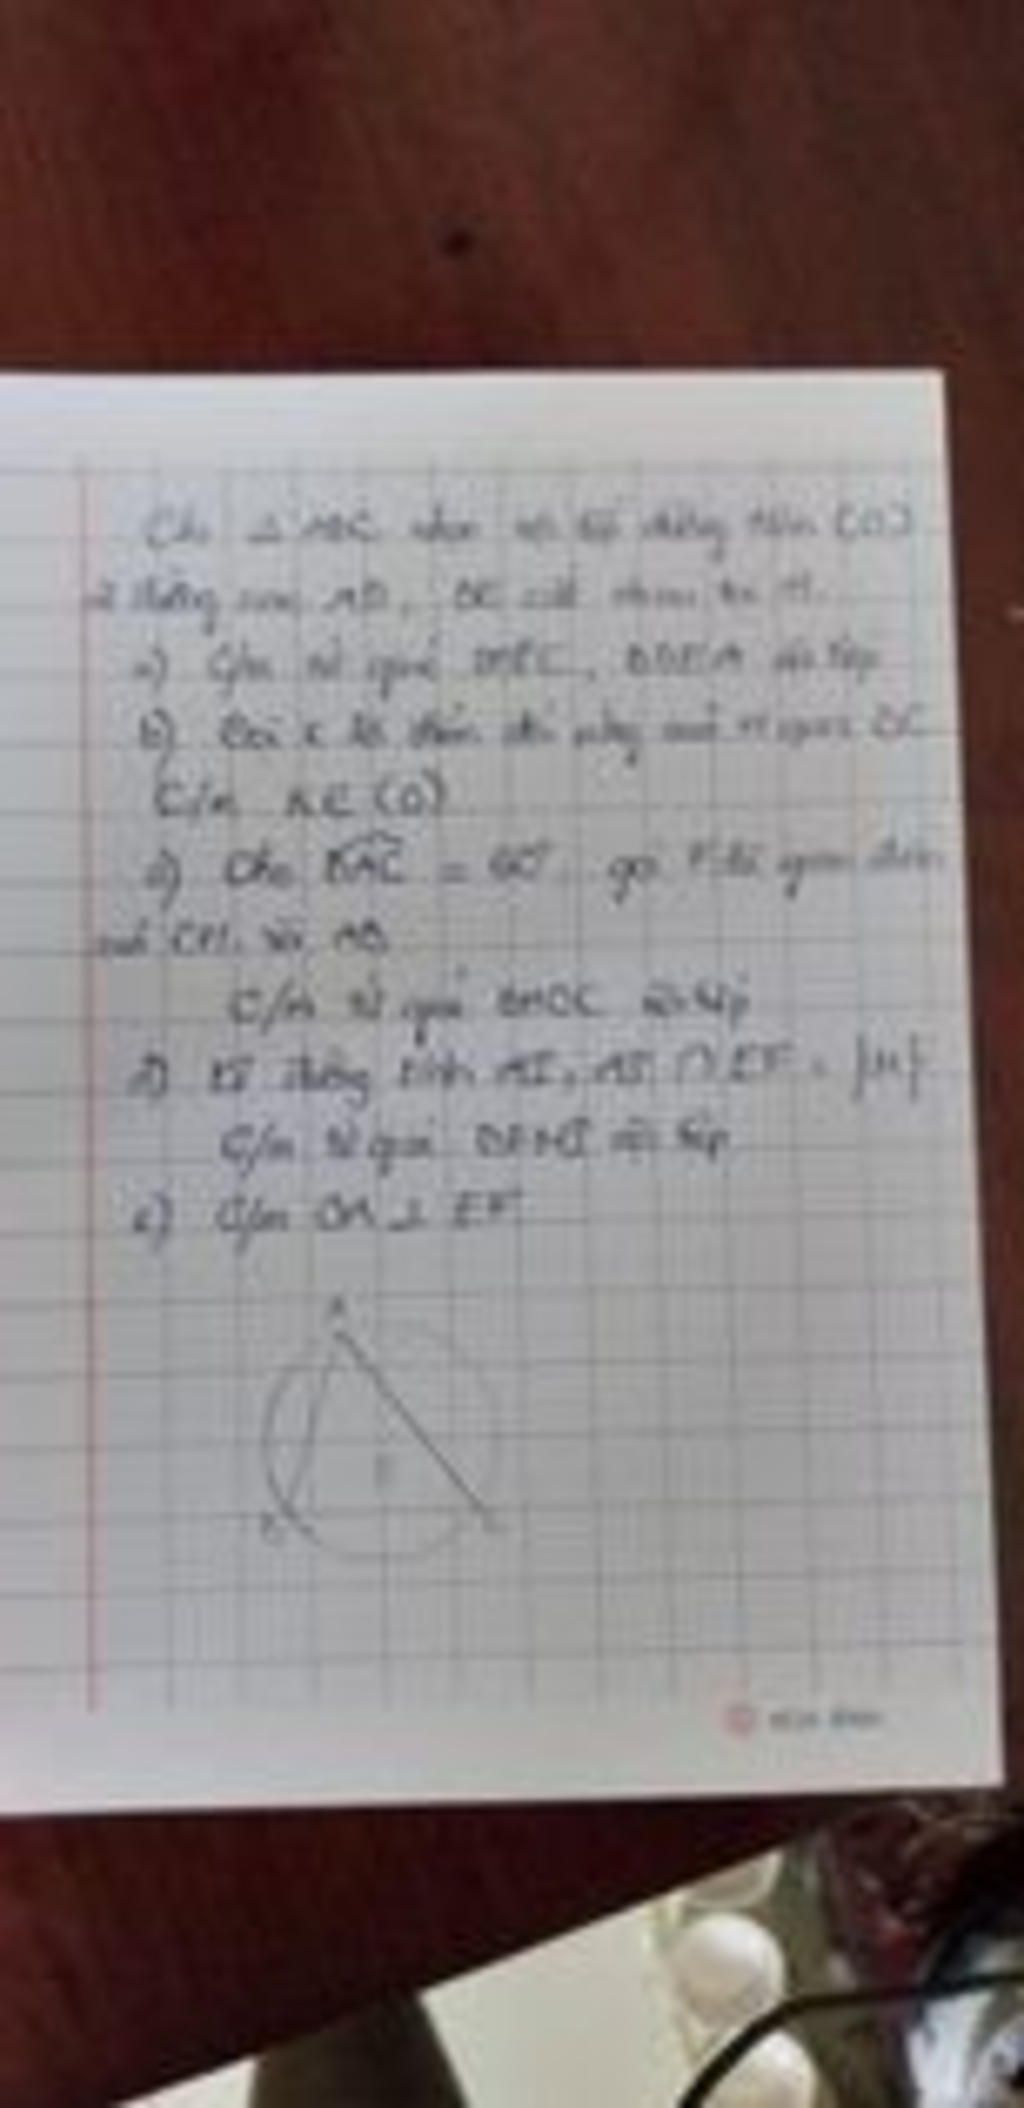 Cho △ABC nhọn nội tiếp đường tròn (O)
2 đường cao AD, BE cắt nhau tại H.
a) C/m tứ giác DHEC, BDEA nội tiếp
b) Gọi K là điểm đối xứng của H qua BC
C/m K∈(O)
c) Cho BAC = 60° gọi F là giao điểm
của CH với AB
C/m tứ giác BHOC nội tiếp
d) Kẻ đường kính AI, AI ∩ EF = {M}
C/m tứ giác nội tiếp
e) C/m OA ⊥ EF
A
B
C